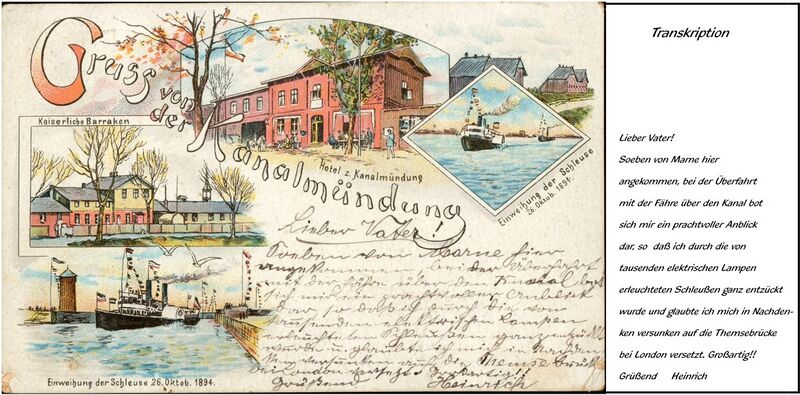 Gruss von
der
Kanalmündung!
Kaiserliche Barraken
Hotel z. Kanalmündung
Einweihung der Schleuse
26. Oktob. 1894.
Einweihung der Schleuse 26. Oktob. 1894.
Lieber Vater
Soeben von Marne hier
angekommen, bei der Überfahrt
mit der Fähre über den Kanal bot
sich mir ein prachtvoller Anblick
dar, so daß ich durch die von
tausenden elektrischen Lampen
erleuchteten Schleußen ganz entzückt
wurde und glaubte ich mich in Nachden-
ken versunken auf die Themsebrücke
bei London versetzt. Großartig!!
Grüßend Heinrich
Transkription
Lieber Vater!
Soeben von Marne hier
angekommen, bei der Überfahrt
mit der Fähre über den Kanal bot
sich mir ein prachtvoller Anblick
dar, so daß ich durch die von
tausenden elektrischen Lampen
erleuchteten Schleußen ganz entzückt
wurde und glaubte ich mich in Nachden-
ken versunken auf die Themsebrücke
bei London versetzt. Großartig!!
Grüßend Heinrich